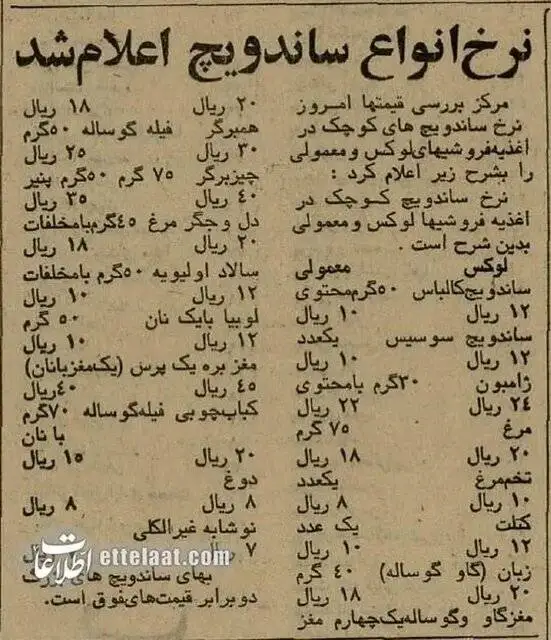 نرخ انواع ساندویچ اعلام شد
مرکز بررسی قیمتها امروز
نرخ ساندویچ های کوچک در
اغذیه فروشیهای لوکس و معمولی
را بشرح زیر اعلام کرد :
نرخ ساندویچ کوچک در
اغذیه فروشیها لوکس و معمولی
بدین شرح است .
لوکس معمولی
ساندویچ کالباس ۵۰ گرم محتوی
۱۲ ریال ۱۰ ریال
ساندویچ سوسیس یکعدد
۱۲ ریال ۱۰ ریال
ژامبون ۳۰ گرم با محتوی
۲۴ ریال ۲۲ ریال
مرغ ۷۵ گرم
۲۰ ریال ۱۸ ریال
تخم مرغ یکعدد
۱۰ ریال ۸ ریال
کتلت یک عدد
۱۲ ریال ۱۰ ریال
زبان (گاو گوساله) ۴۰ گرم
۲۰ ریال ۱۸ ریال
مغز گاو و گوساله یک چهارم مغز
۲۰ ریال ۱۸ ریال
همبرگر فیله گوساله ۵۰ گرم
۳۰ ریال ۲۵ ریال
چیزبرگر ۷۵ گرم ۵۰ گرم پنیر
۴۰ ریال ۳۵ ریال
دل و جگر مرغ ۴۵ گرم با مخلفات
۲۰ ریال ۱۸ ریال
سالاد اولیویه ۵۰ گرم با مخلفات
۱۲ ریال ۱۰ ریال
لوبیا با یک نان ۵۰ گرم
۱۲ ریال ۱۰ ریال
مغز بره یک پرس (یک مغز با نان)
۴۵ ریال ۴۰ ریال
کباب چوبی فیله گوساله ۷۰ گرم
با نان
۲۰ ریال ۱۵ ریال
دوغ
۸ ریال ۸ ریال
نوشابه غیرالکلی
۷ ریال
بهای ساندویچ های
دو برابر قیمت های فوق است.
اطلاعات ettelaat.com